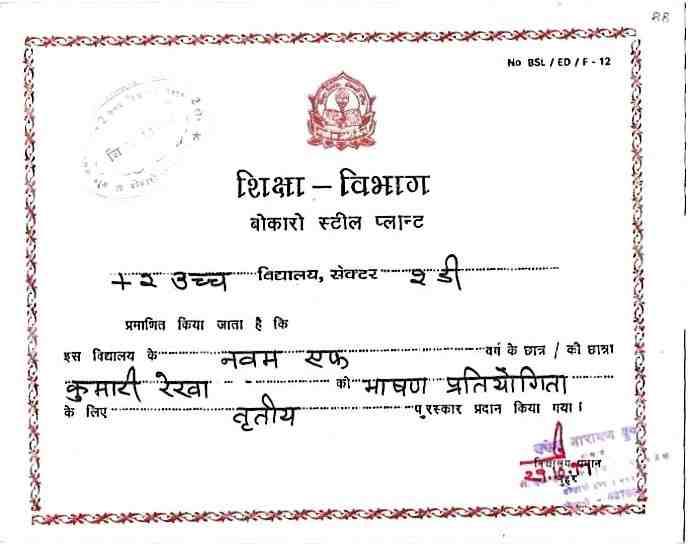 88
No BSL / ED / F - 12
शिक्षा - विभाग
बोकारो स्टील प्लान्ट
+२ उच्च विद्यालय, सेक्टर २ डी
प्रमाणित किया जाता है कि
इस विद्यालय के नवम एफ वर्ग के छात्र / की छात्रा
कुमारी रेखा को भाषण प्रतियोगिता
के लिए तृतीय पुरस्कार प्रदान किया गया।
नारायण
विद्यालय प्रधान
मुहर